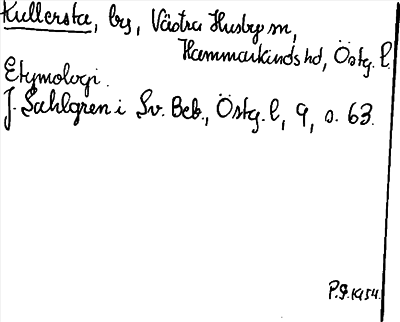 Kullersta, by, Västra Husby sn,
Hammarkinds hd, Östg. l.
Etymologi.
J. Sahlgren i Sv. Beb., Östg. l, 9, s. 63.
P.G. 1954.